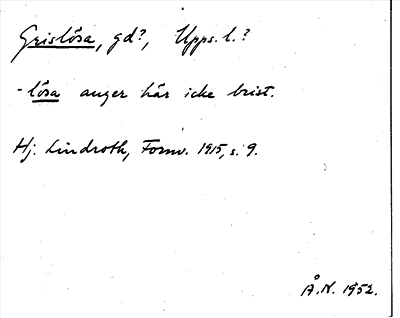 Grislösa, gd?, Upps. l.?
-lösa anger här icke brist.
Hj. Lindroth, Fornv. 1915, s. 9.
Å.N. 1952.